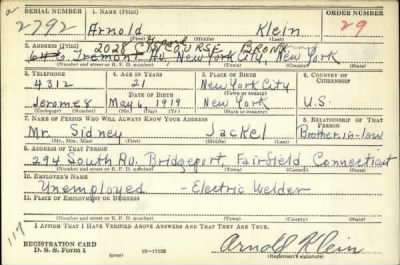 SERIAL NUMBER 1. NAME (Print) ORDER NUMBER
2792 Arnold Klein 29
(First) (Middle) (Last)
2028 Grand CONCOURSE BRONX
2. ADDRESS (Print)
64 E. Tremont Av. New York City, New York
(Number and street or R. F. D. number) (Town) (County) (State)
3. TELEPHONE 4. AGE IN YEARS 5. PLACE OF BIRTH 6. COUNTRY OF CITIZENSHIP
4312 21 New York City
DATE OF BIRTH (Town or county)
Jerome 8 May 6 1919 New York U.S.
(Exchange) (Number) (Mo.) (Day) (Yr.) (State or country)
7. NAME OF PERSON WHO WILL ALWAYS KNOW YOUR ADDRESS 8. RELATIONSHIP OF THAT PERSON
Mr. Sidney Jackel Brother-in-law
(Mr., Mrs., Miss) (First) (Middle) (Last)
9. ADDRESS OF THAT PERSON
294 South Av. Bridgeport, Fairfield, Connecticut
(Number and street or R. F. D. number) (Town) (County) (State)
10. EMPLOYER'S NAME
Unemployed - Electric Welder
11. PLACE OF EMPLOYMENT OR BUSINESS
(Number and street or R. F. D. number) (Town) (County) (State)
I AFFIRM THAT I HAVE VERIFIED ABOVE ANSWERS AND THAT THEY ARE TRUE.
117
REGISTRATION CARD
D. S. S. Form 1 Arnold Klein
(Registrant's signature)